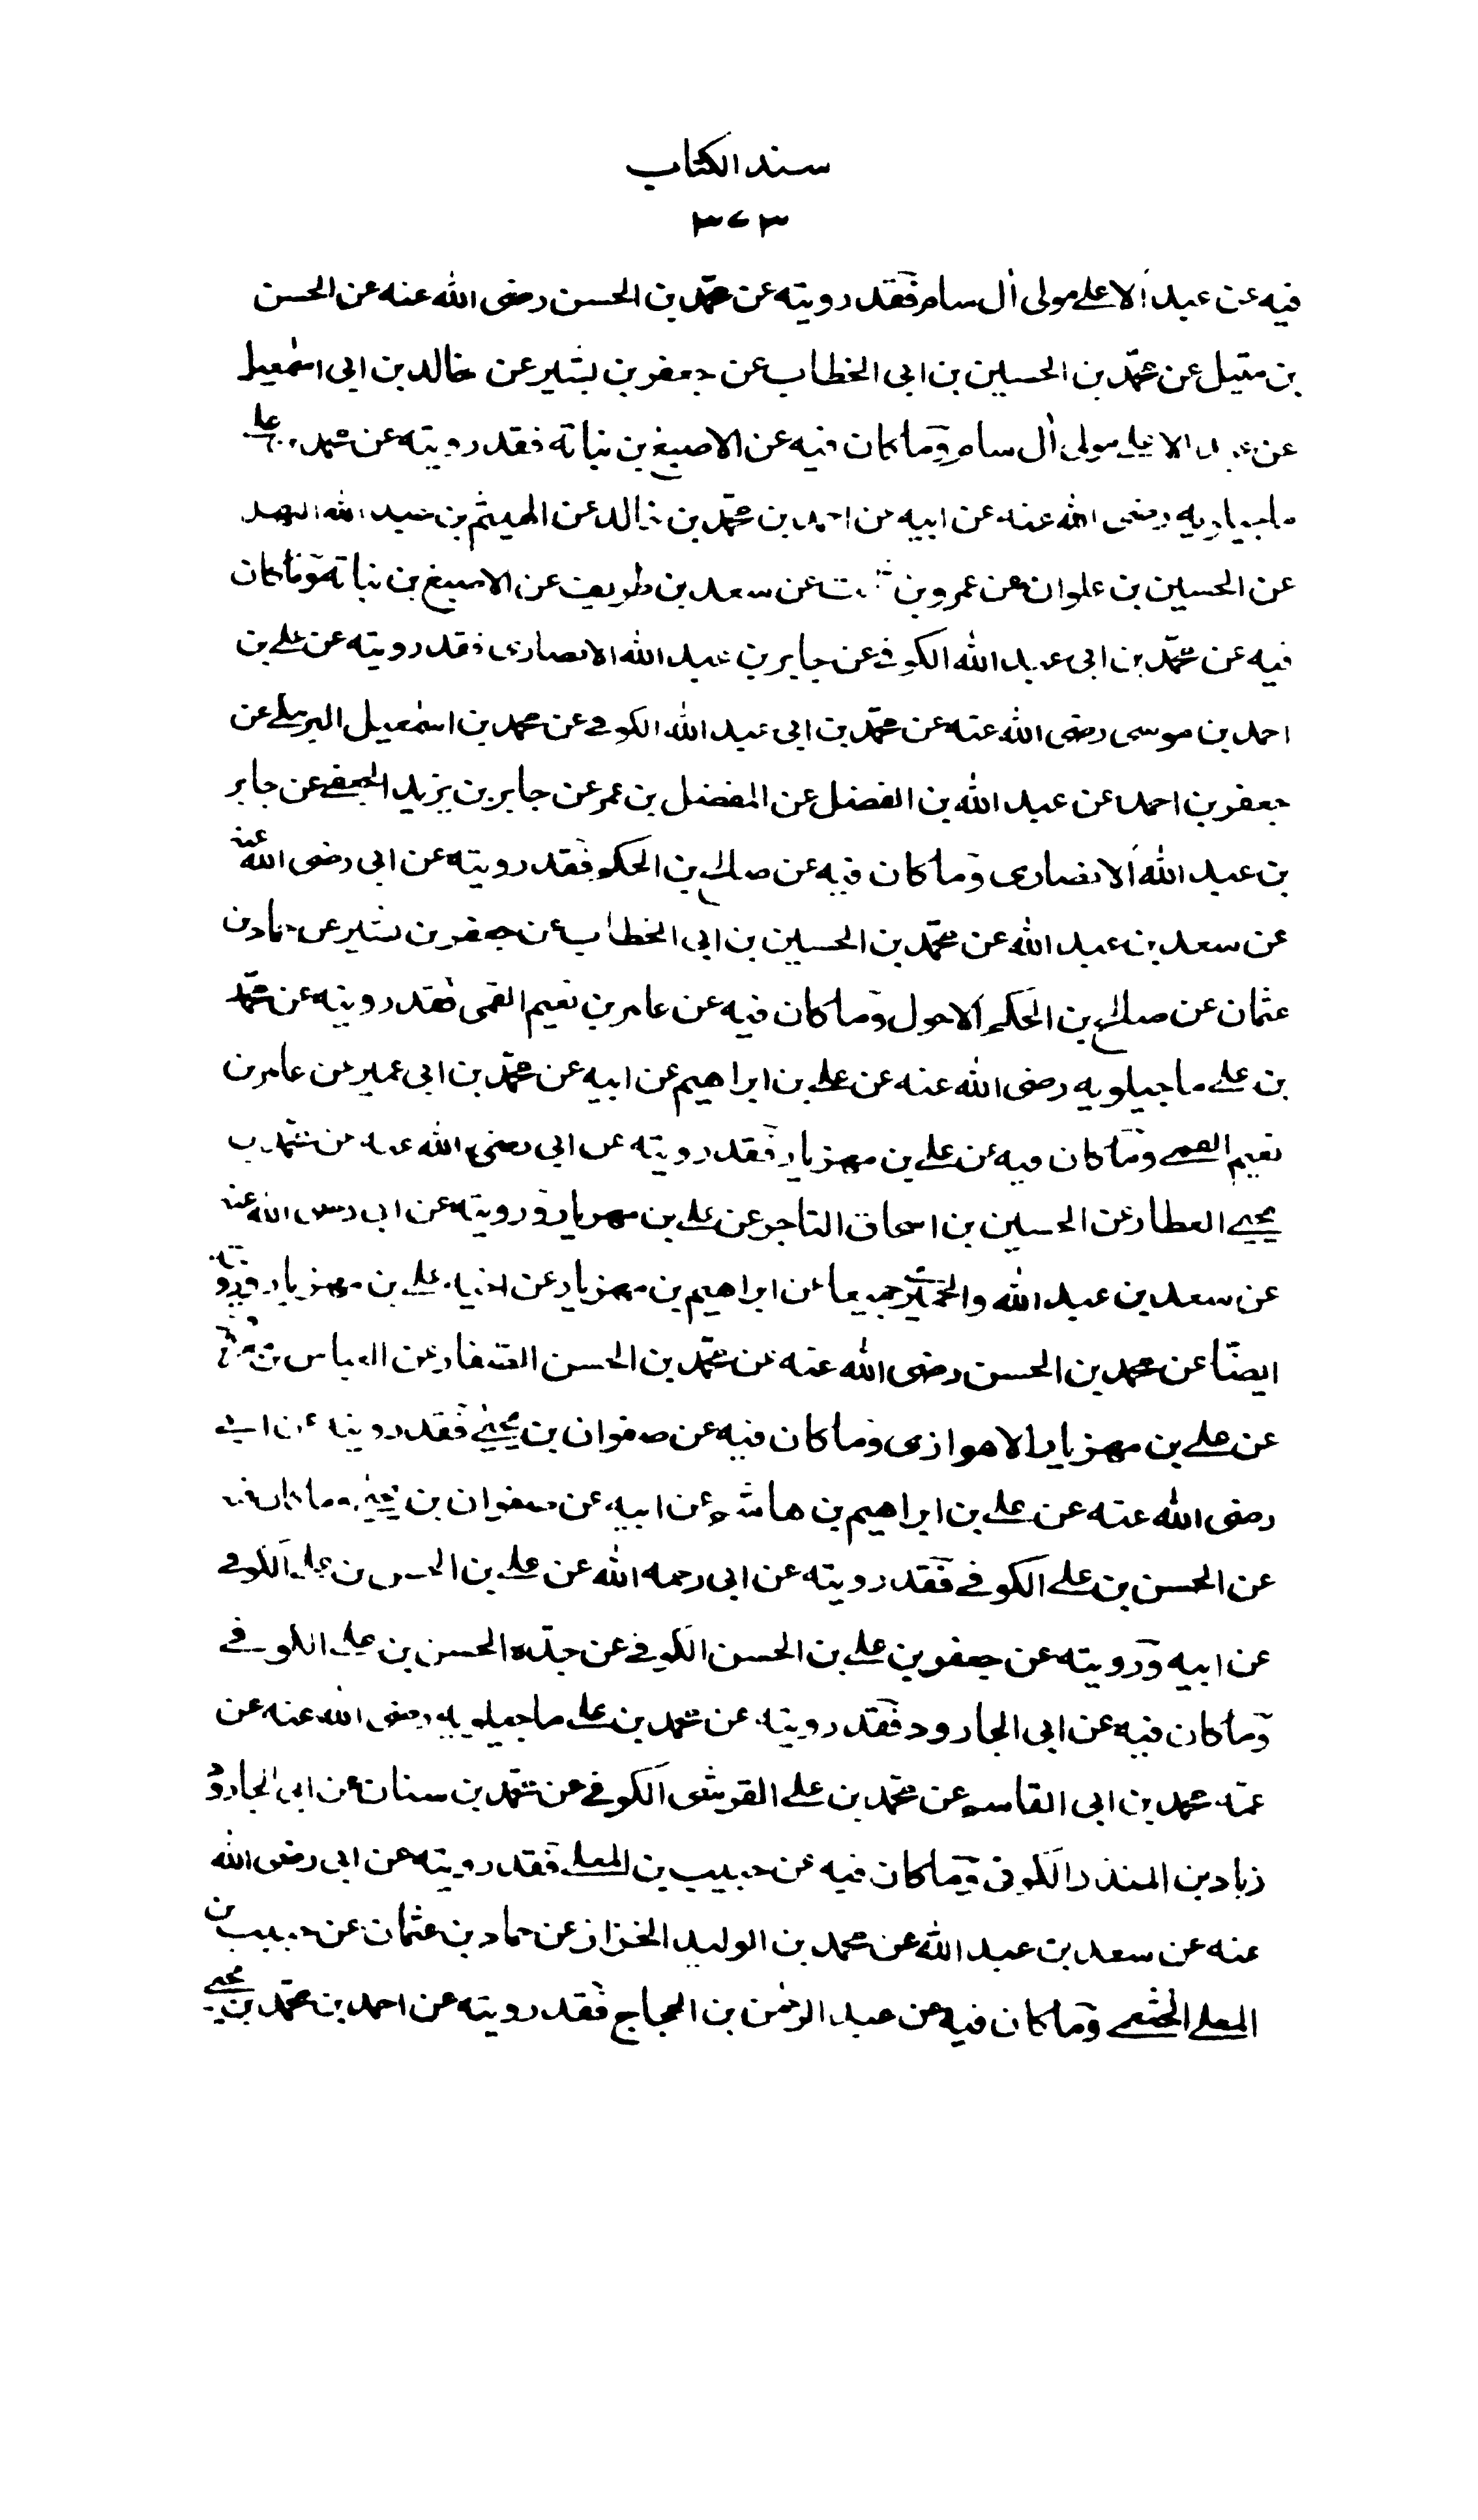 سند الكتاب
٣٧٣
فيه عن عبد الاعلى مولى آل سام فقد رويته عن محمّد بن الحسن رضى الله عنه عن الحسن
بن متيل عن محمّد بن الحسين بن ابى الخطاب عن جعفر بن بشير عن خالد بن ابى اسمٰعيل
عن عبد الاعلى مولى آل سام وما كان فيه عن الاصبغ بن نباتة فقد رويته عن محمد بن على
ماجيلويه رضى الله عنه عن ابيه عن احمد بن محمّد بن خالد عن الهيثم بن عبد الله النهدى
عن الحسين بن علوان عن عمرو بن ثابت عن سعد بن طريف عن الاصبغ بن نباتة وما كان
فيه عن محمّد بن ابى عبد الله الكوفى عن جابر بن عبد الله الانصارى فقد رويته عن على بن
احمد بن موسى رضى الله عنه عن محمّد بن ابى عبد الله الكوفى عن محمد بن اسمٰعيل البرمكى عن
جعفر بن احمد عن عبد الله بن الفضل عن المفضل بن عمر عن جابر بن يزيد الجعفى عن جابر
بن عبد الله الانصارى وما كان فيه عن صالح بن الحكم فقد رويته عن ابى رضى الله عنه
عن سعد بن عبد الله عن محمّد بن الحسين بن ابى الخطاب عن جعفر بن بشير عن حماد بن
عثمان عن صالح بن الحكم الاحول وما كان فيه عن عامر بن نعيم القمى فقد رويته عن محمّد
بن على ماجيلويه رضى الله عنه عن على بن ابراهيم عن ابيه عن محمّد بن ابى عمير عن عامر بن
نعيم القمى وما كان فيه عن على بن مهزيار فقد رويته عن ابى رضى الله عنه عن محمّد بن
يحيى العطار عن الحسين بن اسحاق التاجر عن على بن مهزيار ورويته عن ابى رضى الله عنه
عن سعد بن عبد الله والحميرى جميعا عن ابراهيم بن مهزيار عن اخيه على بن مهزيار ورويته
ايضًا عن محمد بن الحسن رضى الله عنه عن محمّد بن الحسن الصفار عن العباس بن معروف
عن على بن مهزيار الاهوازى وما كان فيه عن صفوان بن يحيى فقد رويته عن ابى
رضى الله عنه عن على بن ابراهيم بن هاشم عن ابيه عن صفوان بن يحيى وما كان فيه
عن الحسن بن على الكوفى فقد رويته عن ابى رحمه الله عن على بن الحسن بن على الكوفى
عن ابيه ورويته عن جعفر بن على بن الحسن الكوفى عن جدّه الحسن بن على الكوفى
وما كان فيه عن ابى الجارود فقد رويته عن محمد بن على ماجيلويه رضى الله عنه عن
عمّه محمد بن ابى القاسم عن محمّد بن على القرشى الكوفى عن محمّد بن سنان عن ابى الجارود
زياد بن المنذر الكوفى وما كان فيه عن حبيب بن المعلى فقد رويته عن ابى رضى الله
عنه عن سعد بن عبد الله عن محمد بن الوليد الخزاز عن حماد بن عثمان عن حبيب بن
المعلى الخثعمى وما كان فيه عن عبد الرحمٰن بن الحجاج فقد رويته عن احمد بن محمّد بن يحيى